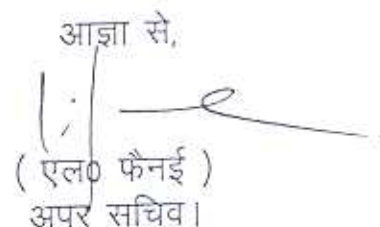 आज्ञा से,
( एल० फैनई )
अपर सचिव।